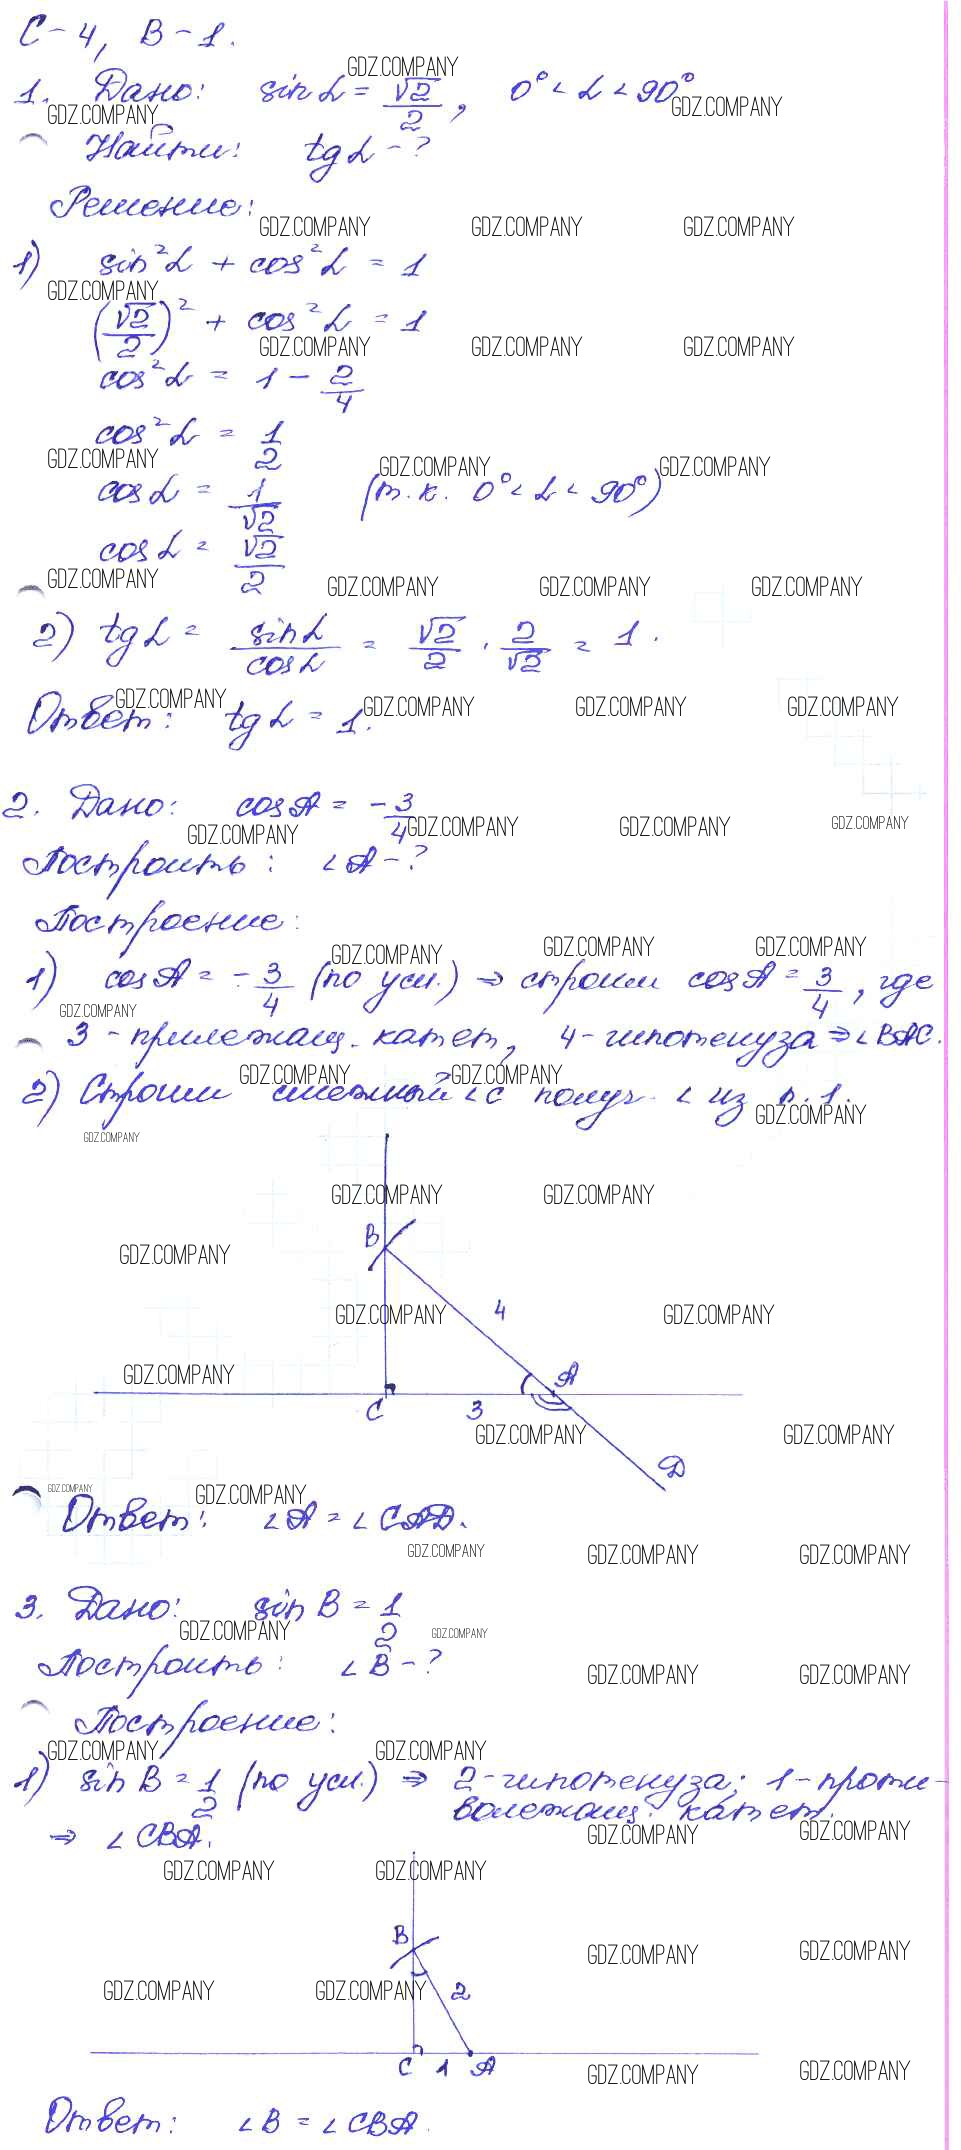 С-4, В-1.
1. Дано: sin α = √2/2, 0° < α < 90°
Найти: tg α - ?
Решение:
1) sin²α + cos²α = 1
(√2/2)² + cos²α = 1
cos²α = 1 - 2/4
cos²α = 1/2
cos α = 1/√2 (т.к. 0° < α < 90°)
cos α = √2/2
2) tg α = sin α/cos α = √2/2 · 2/√2 = 1.
Ответ: tg α = 1.
2. Дано: cos A = -3/4
Построить: ∠A - ?
Построение:
1) cos A = -3/4 (по усл.) ⇒ строим cos A = 3/4, где
3 - прилежащ. катет, 4 - гипотенуза ⇒ ∠BAC.
2) Строим смежный ∠ с получ. ∠ из п. 1.
B
4
A
C
3
D
Ответ: ∠A = ∠CAD.
3. Дано: sin B = 1/2
Построить: ∠B - ?
Построение:
1) sin B = 1/2 (по усл.) ⇒ 2 - гипотенуза; 1 - проти-
волежащ. катет.
⇒ ∠CBA.
B
2
C 1 A
Ответ: ∠B = ∠CBA.
GDZ.COMPANY